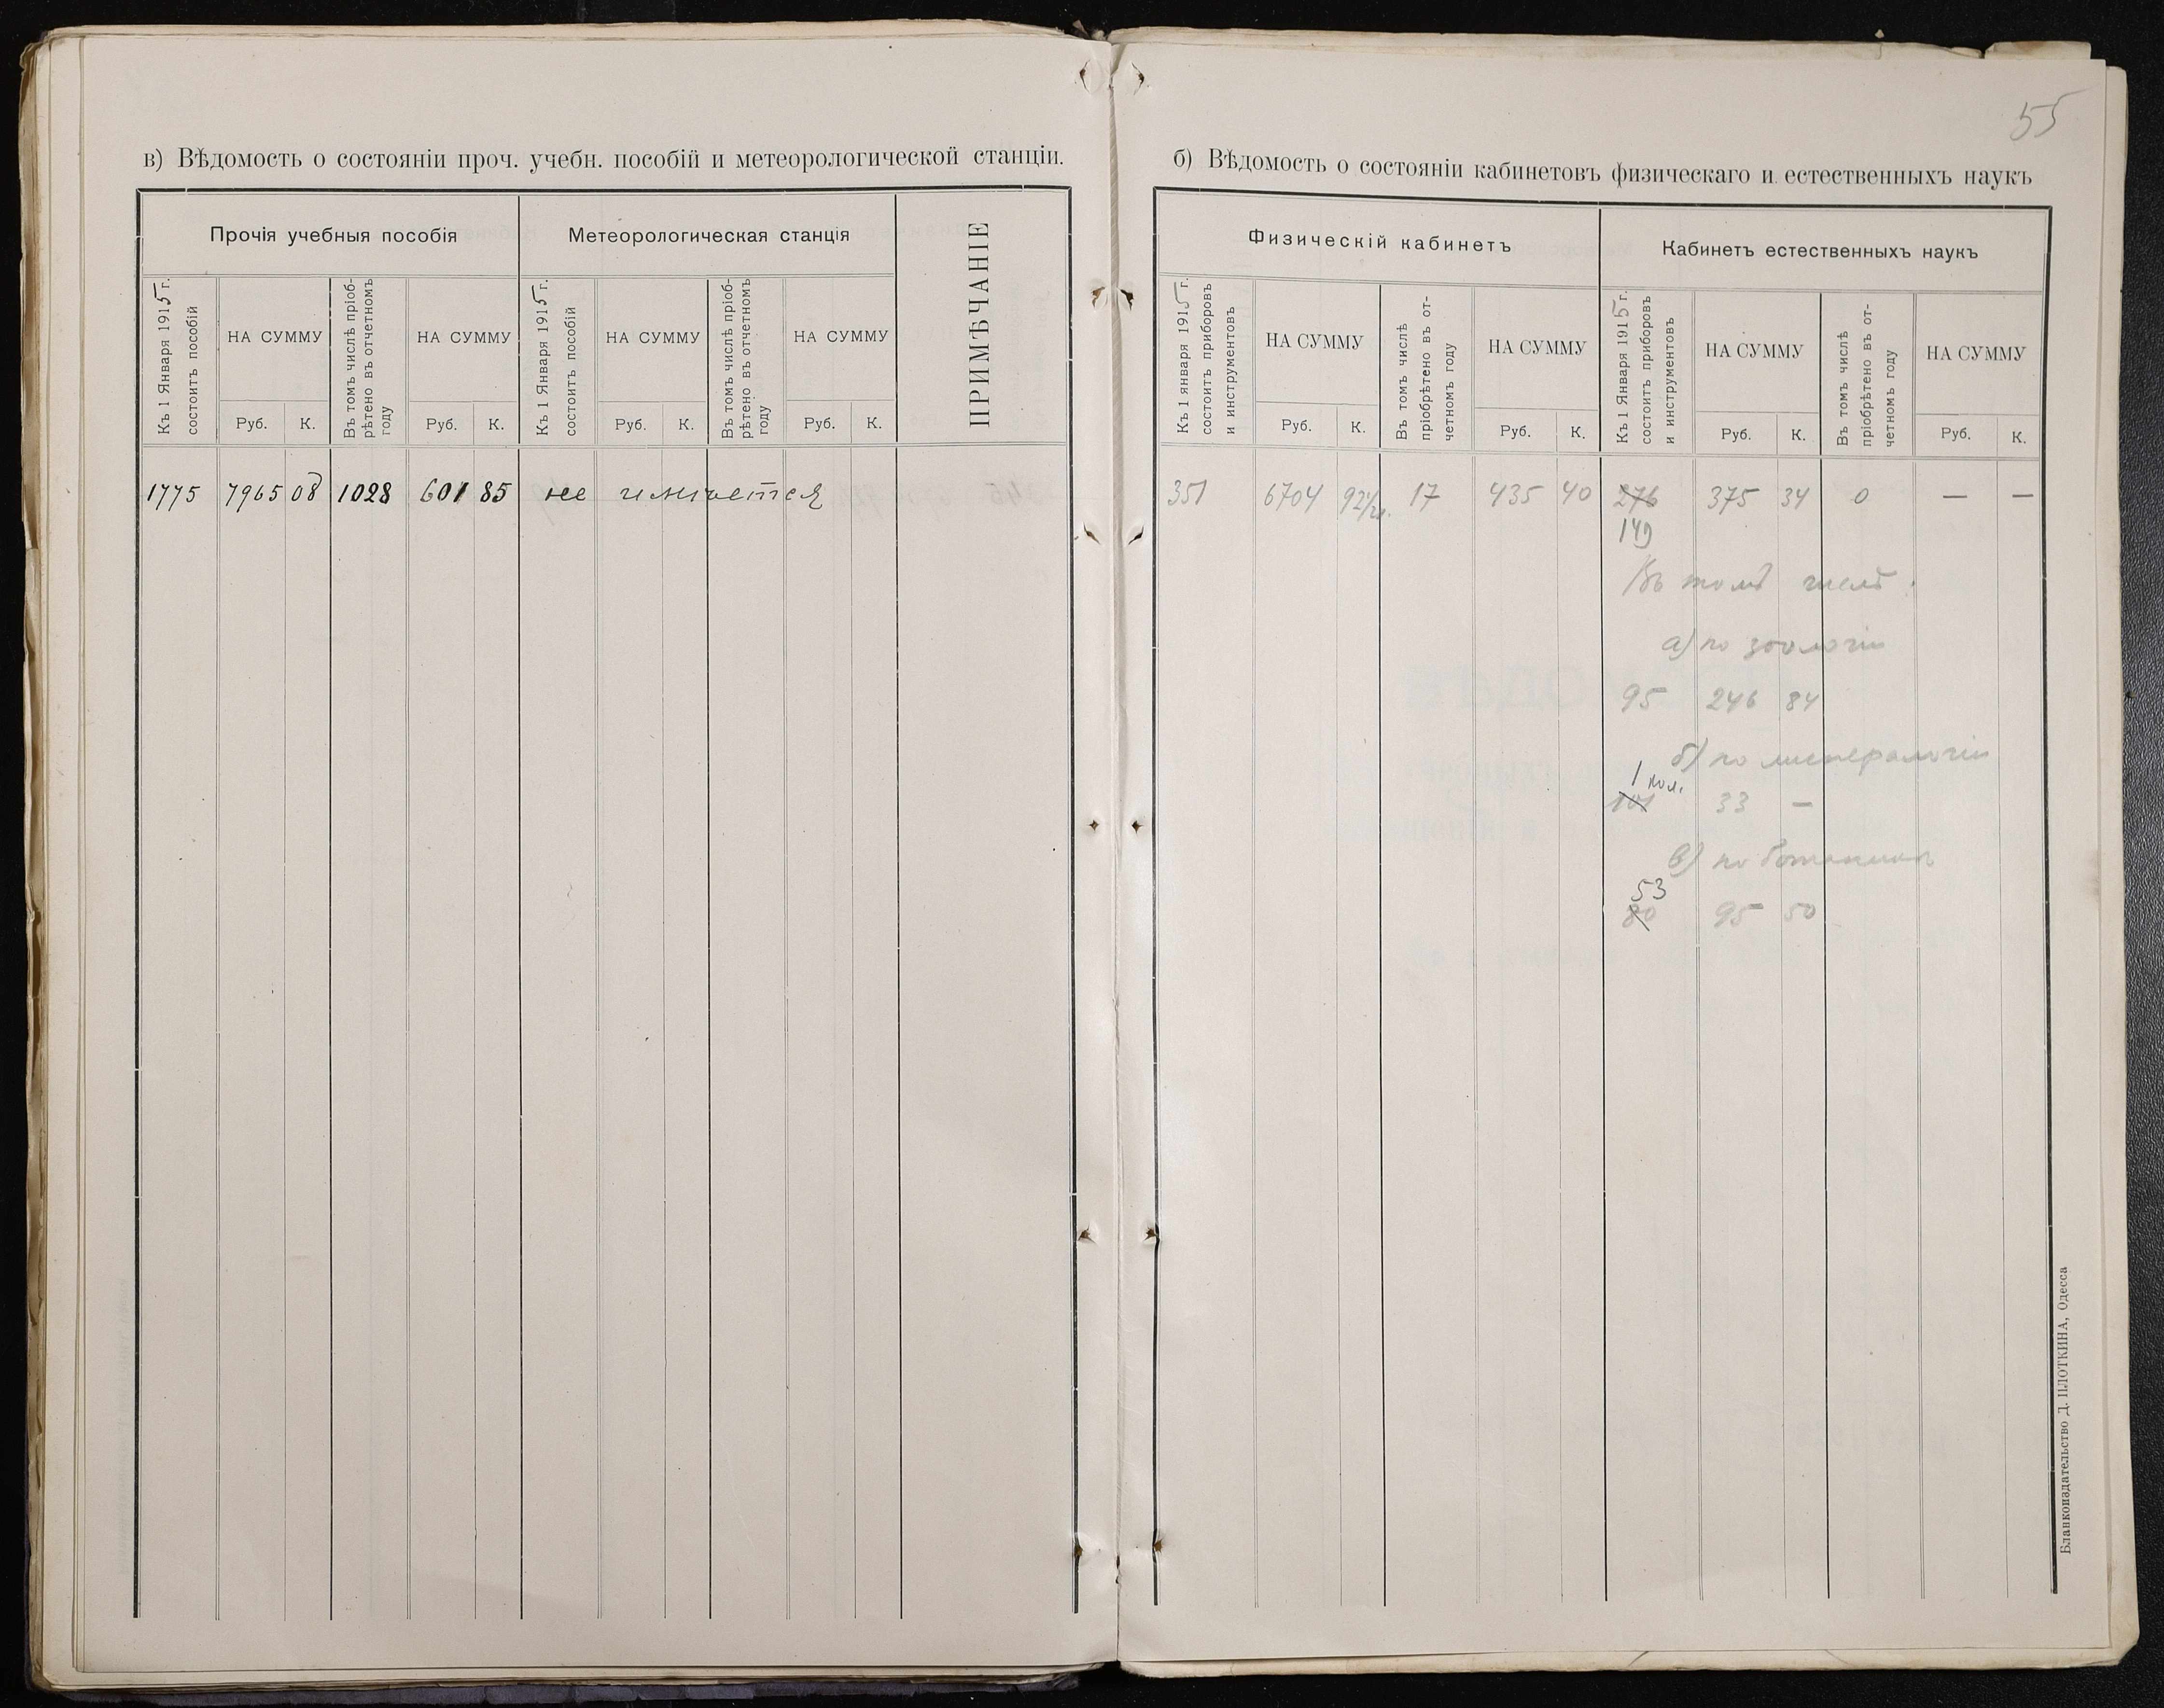 в) Вѣдомость о состояніи проч. учебн. пособій и метеорологической станціи.
Прочія учебныя пособія
Метеорологическая станція
ПРИМѢЧАНІЕ
Къ 1 Января 1915 г.
состоитъ пособій
НА СУММУ
Руб.
К.
Въ томъ числѣ пріоб-
рѣтено въ отчетномъ
году
НА СУММУ
Руб.
К.
Къ 1 Января 1915 г.
состоитъ пособій
НА СУММУ
Руб.
К.
Въ томъ числѣ пріоб-
рѣтено въ отчетномъ
году
НА СУММУ
Руб.
К.
1775 7965 08 1028 601 85 не имѣется
55
б) Вѣдомость о состояніи кабинетовъ физическаго и естественныхъ наукъ
Физическій кабинетъ
Кабинетъ естественныхъ наукъ
Къ 1 января 1915 г.
состоитъ приборовъ
и инструментовъ
НА СУММУ
Руб.
К.
Въ томъ числѣ
пріобрѣтено въ от-
четномъ году
НА СУММУ
Руб.
К.
Къ 1 Января 1915 г.
состоитъ приборовъ
и инструментовъ
НА СУММУ
Руб.
К.
Въ томъ числѣ
пріобрѣтено въ от-
четномъ году
НА СУММУ
Руб.
К.
351 6704 92 17 435 40 276 375 34 0 — —
149
Въ томъ числѣ:
а) по зоологіи
95 246 84
б) по минералогіи
1 кол.
101 33 —
в) по ботаникѣ
53
80 95 50
Бланкоиздательство Д. ПЛОТКИНА, Одесса